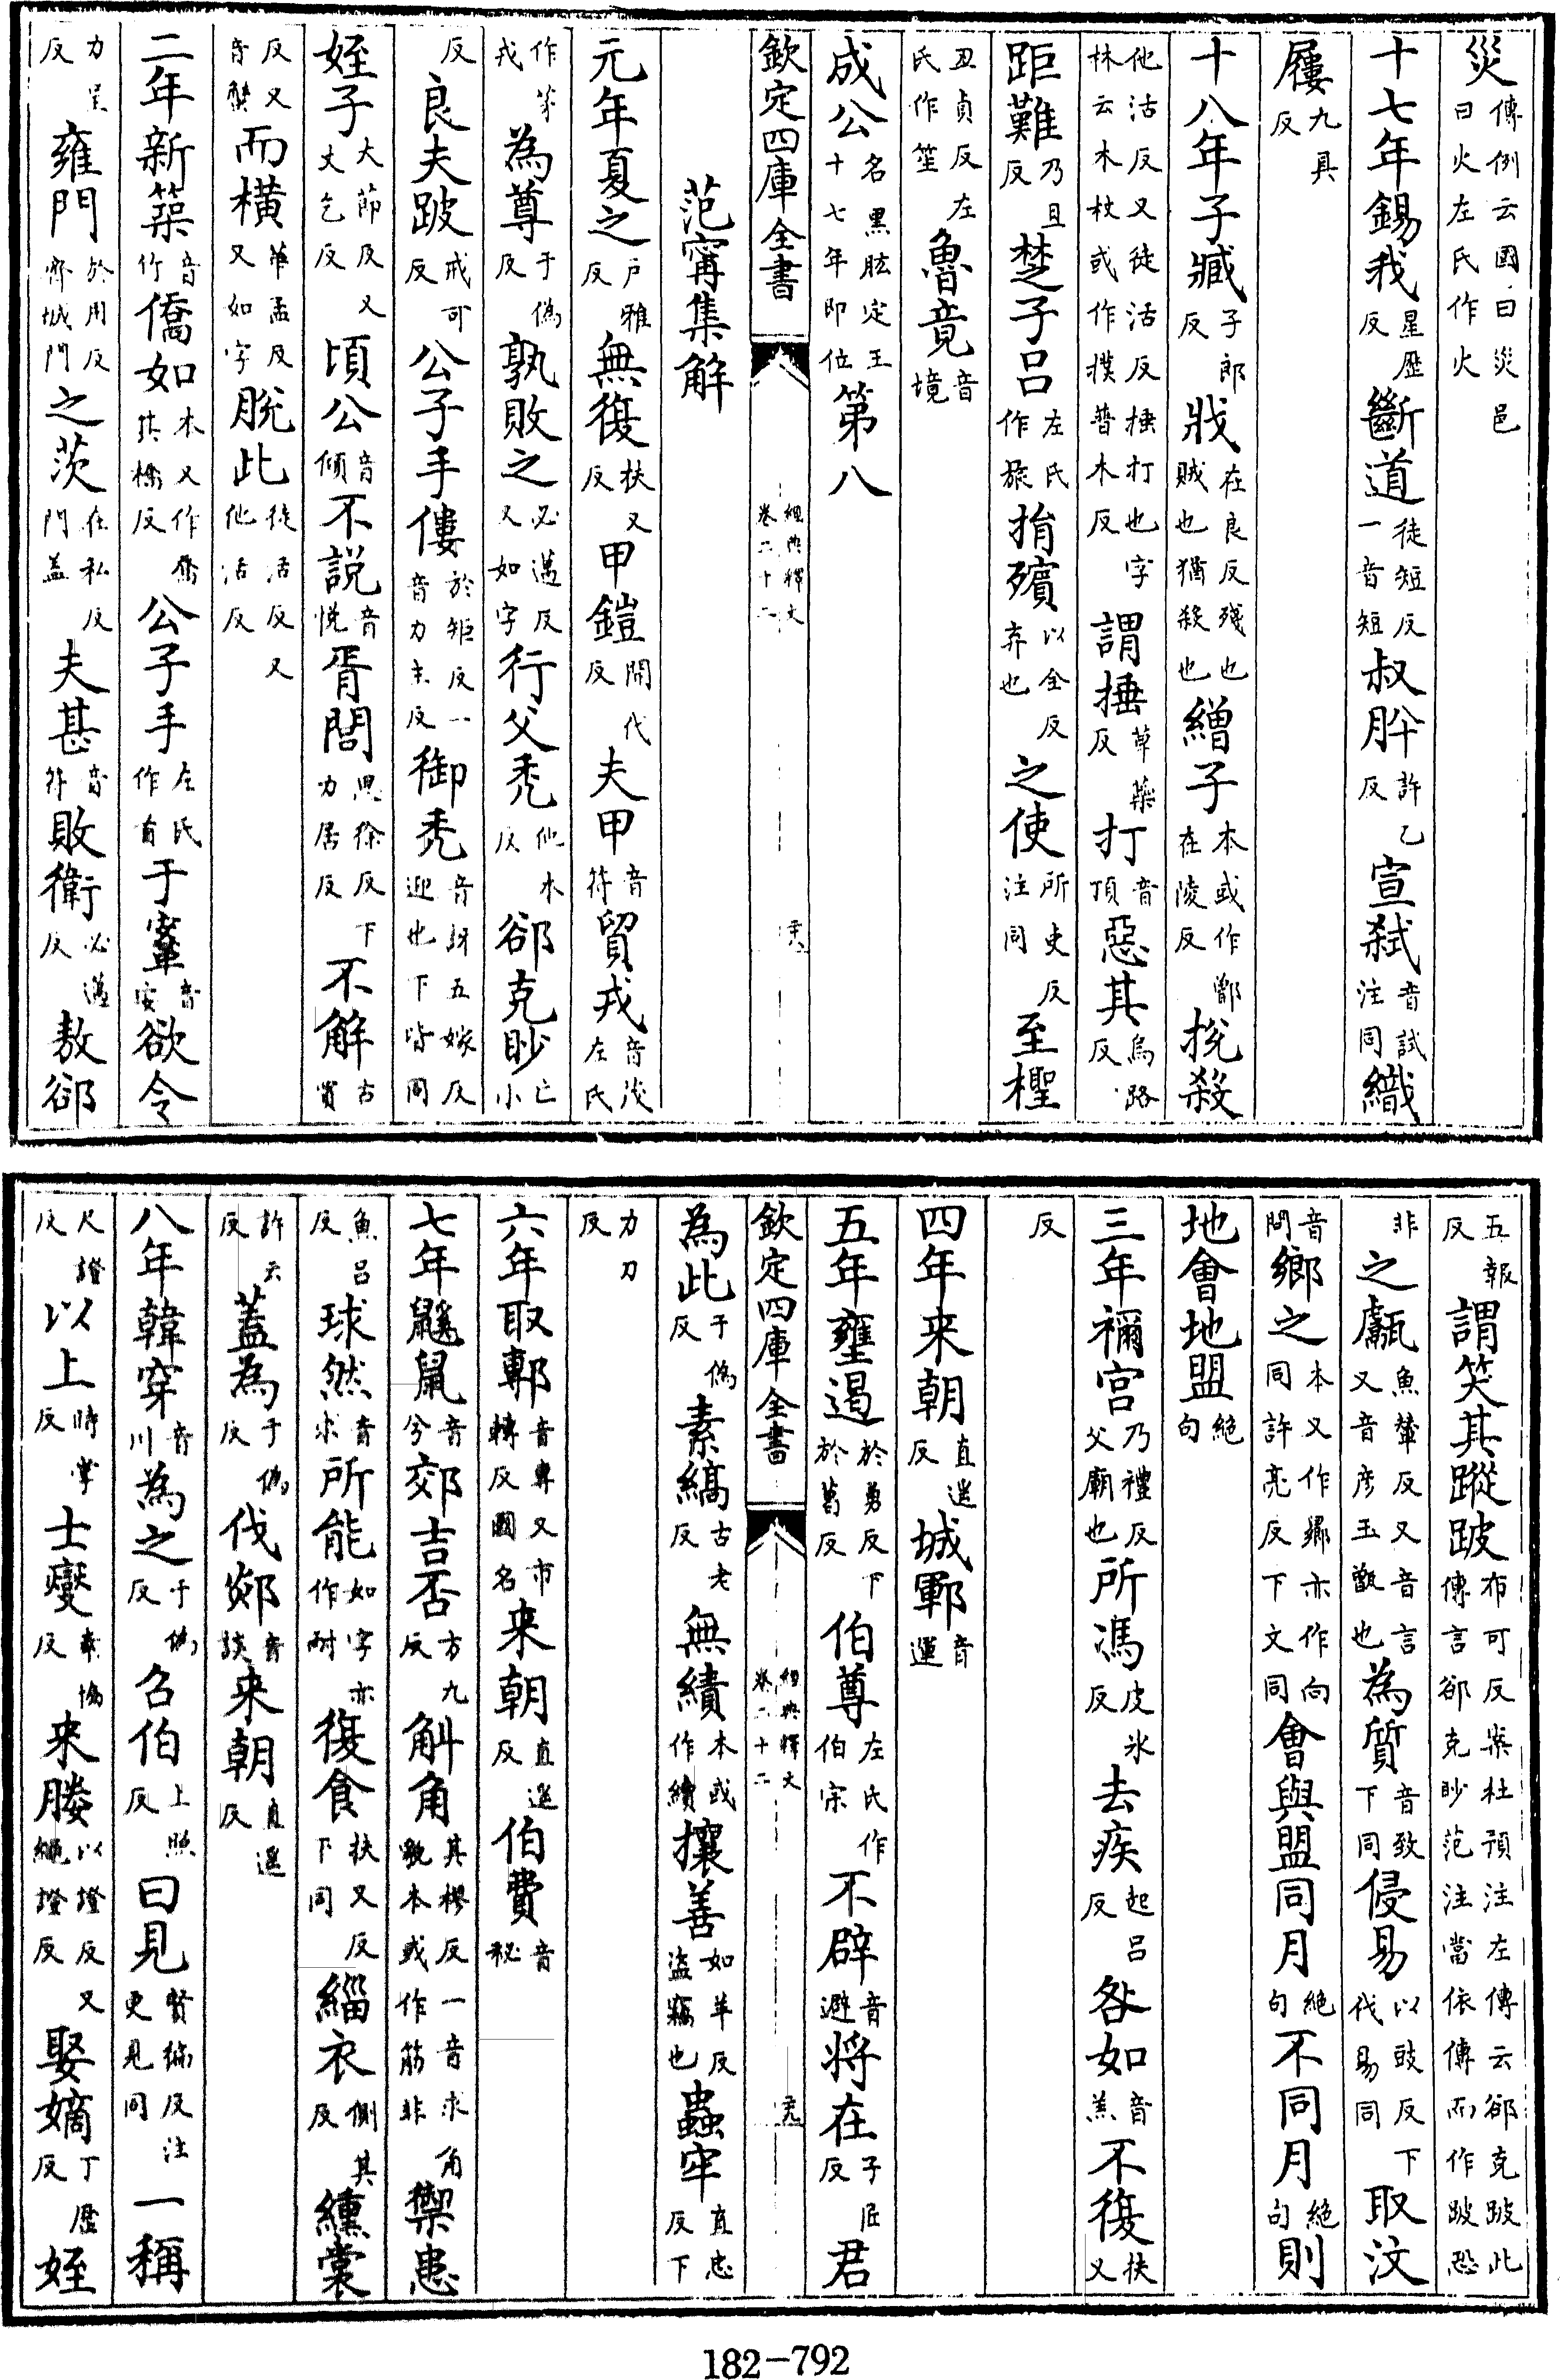 災傳例云國曰災邑曰火左氏作火
十七年錫我星歷反斷道徒短反一音短叔肸許乙反宣弑音試注同織
屨九具反
十八年子臧子郎反戕在良反殘也賊也猶殺也繒子本或作鄫在陵反捝殺
他活反又徒活反捶打也字林云木杖或作撲普木反謂捶章藥反打音頂惡其烏路反
距難乃旦反楚子呂左氏作旅捐殯以全反弃也之使所吏反注同至檉
丑貞反左氏作笙魯竟音境
成公名黑肱定王十七年即位第八
欽定四庫全書 經典釋文卷二十二
范甯集解
元年夏之戶雅反無復扶又反甲鎧開代反夫甲音符貿戎音茂左氏
作茅戎為尊于偽反孰敗之必邁反又如字行父禿他木反郤克眇亡小
反良夫跛戒可反公子手僂於矩反一音力主反御禿音訝五嫁反迎也下皆同
姪子大節反又丈乞反頃公音傾不説音悅胥閭思徐反下力居反不解古買
反又音蟹而橫華孟反又如字脫此徒活反又他活反
二年新築音竹僑如本又作喬其橋反公子手左氏作首于鞌音安欲令
力呈反雍門於用反齊城門之茨在私反門盖夫甚音符敗衛必邁反敖郤
五報反謂笑其蹤跛布可反案杜預注左傳云郤克跛此傳言郤克眇范注當依傳而作跛恐
非之甗魚輦反又音言又音彦玉甑也為質音致下同侵易以豉反下伐易同取汶
音問鄉之本又作鄉亦作向同許亮反下文同會與盟同月絶句不同月絶句則
地會地盟絶句
三年禰宮乃禮反父廟也所馮皮氷反去疾起呂反咎如音羔不復扶又
反
四年来朝直遥反城鄆音運
五年壅遏於勇反下於葛反伯尊左氏作伯宗不辟音避将在子匠反君
欽定四庫全書 經典釋文卷二十二
為此于偽反素縞古老反無績本或作續攘善如羊反盜竊也蟲牢直忠反下
力刀反
六年取鄟音專又市轉反國名来朝直遥反伯費音秘
七年鼷鼠音兮郊吉否方九反斛角其樛反一音求角貌本或作筋非禦患
魚呂反球然音求所能如字亦作耐復食扶又反下同緇衣側其反纁裳
許云反蓋為于偽反伐郯音談来朝直遥反
八年韓穿音川為之于偽反召伯上照反曰見賢徧反注更見同一稱
尺證反以上時掌反士燮素協反来媵以證反又繩證反娶嫡丁歷反姪
182-792